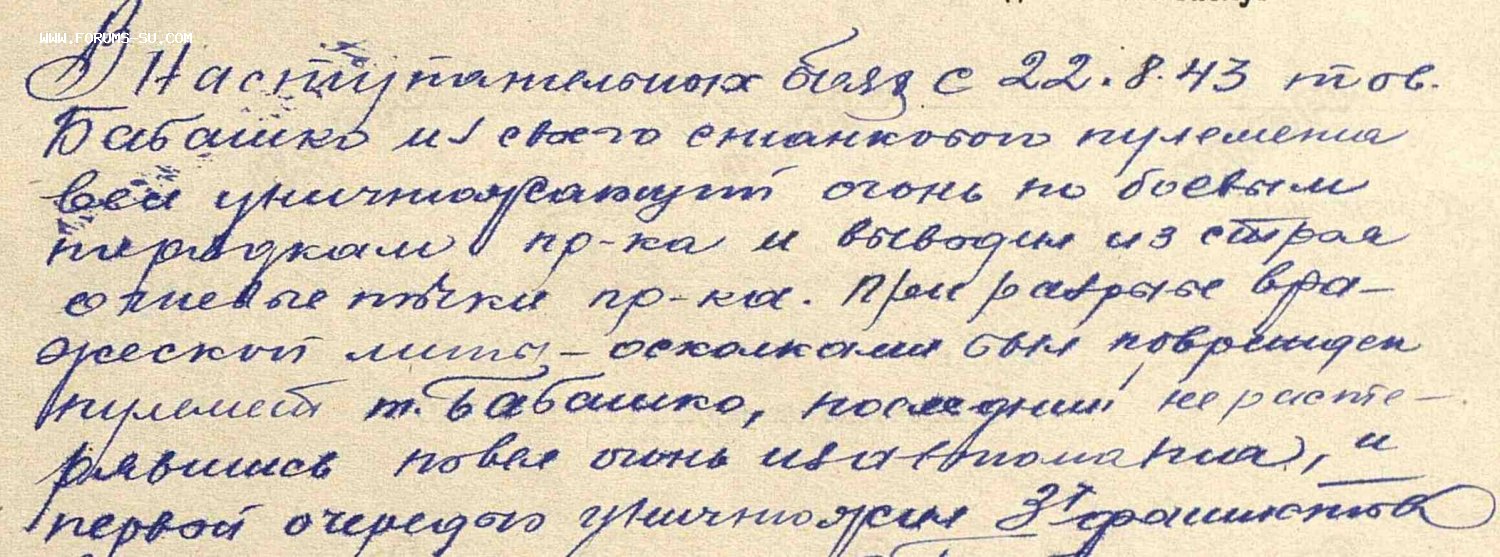 WWW.FORUMS-SU.COM
В Наступательных боях с 22.8.43 тов.
Бабашко из своего станкового пулемета
вел уничтожающий огонь по боевым
порядкам пр-ка и выводил из строя
огневые точки пр-ка. При разрыве вра-
жеской мины – осколками был поврежден
пулемет т. Бабашко, последний не расте-
рявшись повел огонь из автомата, и
первой очередью уничтожил 3х фашистов